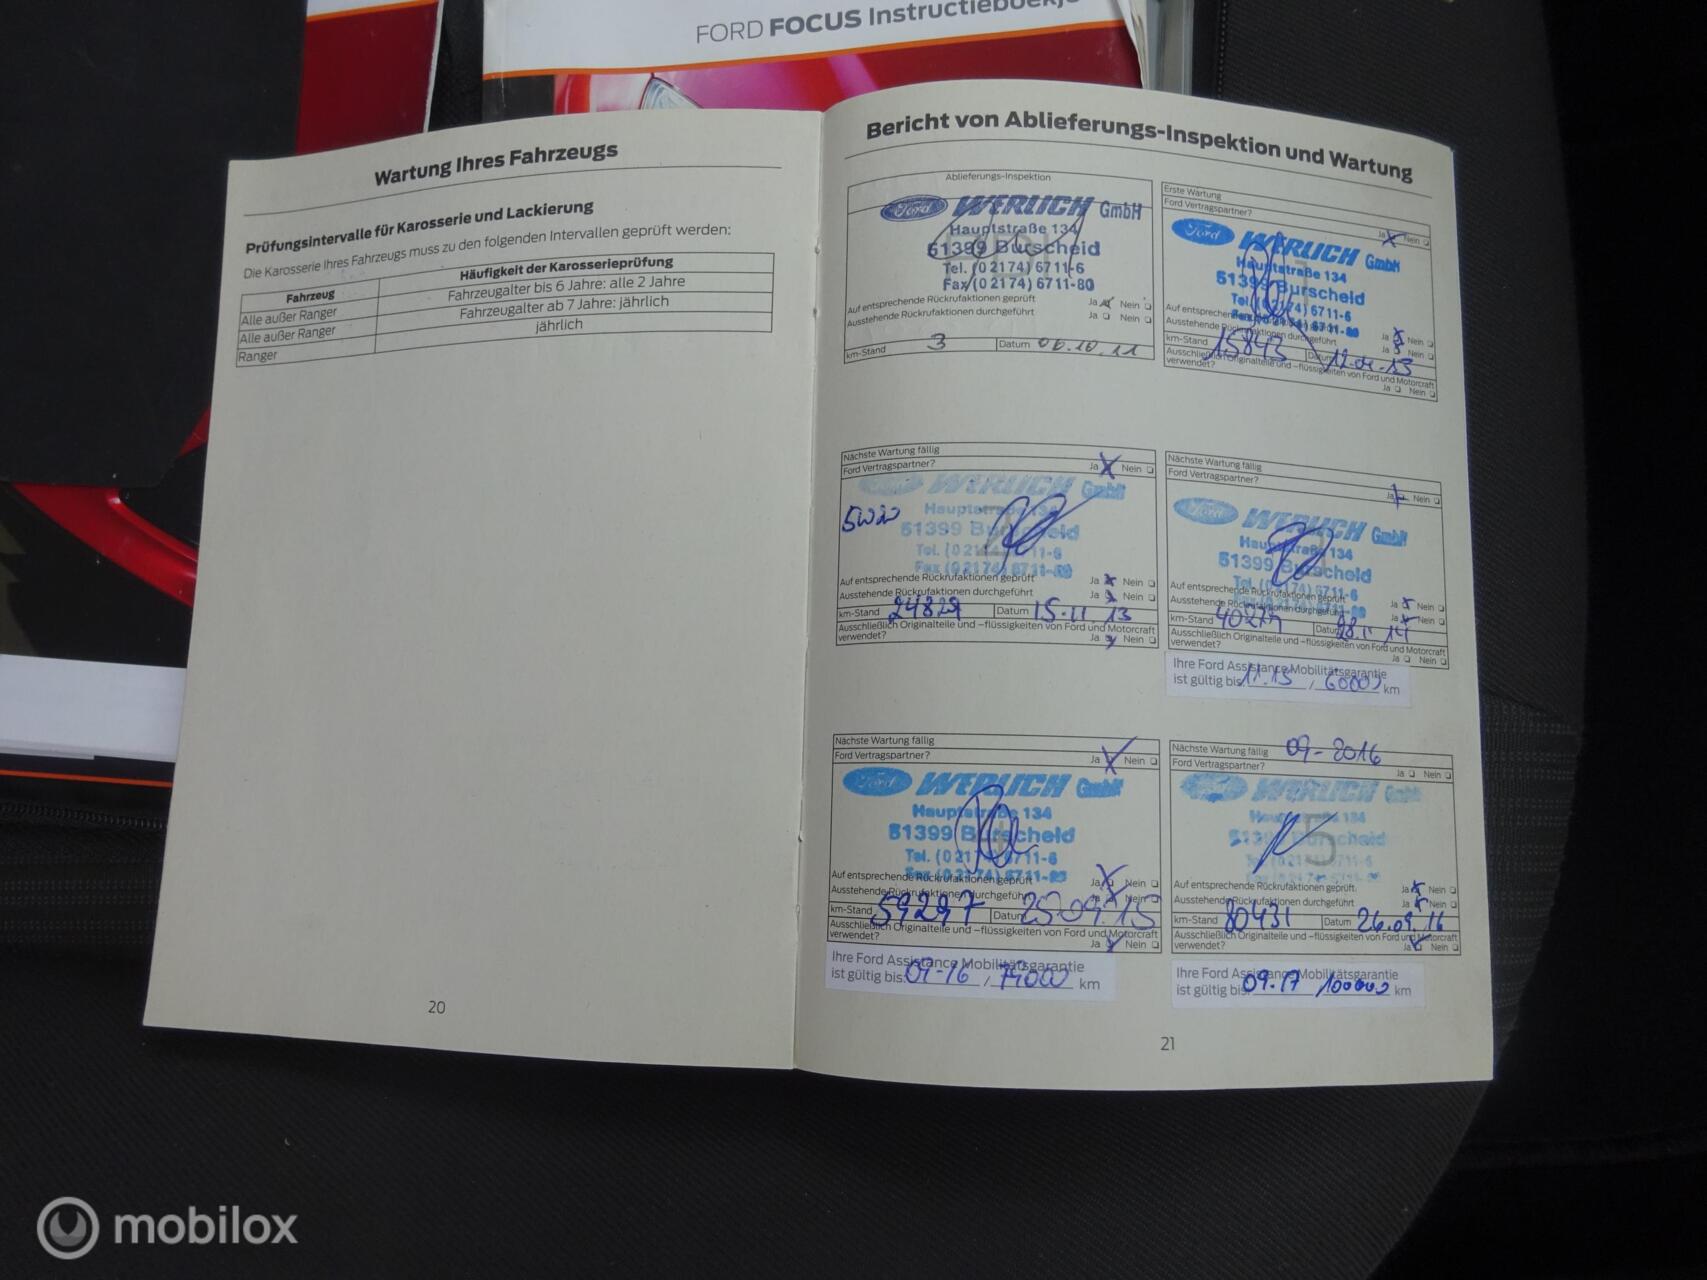 FORD FOCUS Instructieboekje
Wartung Ihres Fahrzeugs
Prüfungsintervalle für Karosserie und Lackierung
Die Karosserie Ihres Fahrzeugs muss zu den folgenden Intervallen geprüft werden:
Fahrzeug Häufigkeit der Karosserieprüfung
Alle außer Ranger Fahrzeugalter bis 6 Jahre: alle 2 Jahre
Alle außer Ranger Fahrzeugalter ab 7 Jahre: jährlich
Ranger jährlich
20
Bericht von Ablieferungs-Inspektion und Wartung
Ablieferungs-Inspektion
Ford WERLICH GmbH
Hauptstraße 134
51399 Burscheid
Tel. (0 21 74) 67 11-6
Fax (0 21 74) 67 11-80
Auf entsprechende Rückrufaktionen geprüft Ja Nein
Ausstehende Rückrufaktionen durchgeführt Ja Nein
km-Stand 3 Datum 06.10.11
Erste Wartung
Ford Vertragspartner? Ja Nein
Ford WERLICH GmbH
Hauptstraße 134
51399 Burscheid
Tel. (0 21 74) 67 11-6
Auf entsprechende
Ausstehende Rückrufaktionen durchgeführt Ja Nein
Ja Nein
km-Stand 15843 Datum
Ausschließlich Originalteile und –flüssigkeiten von Ford und Motorcraft
verwendet? Ja Nein
Nächste Wartung fällig
Ford Vertragspartner? Ja Nein
WERLICH GmbH
5W20
Hauptstraße 134
51399 Burscheid
Tel. (0 21 74) 67 11-6
Fax (0 21 74) 67 11-80
Auf entsprechende Rückrufaktionen geprüft Ja Nein
Ausstehende Rückrufaktionen durchgeführt Ja Nein
km-Stand 24829 Datum 15.11.13
Ausschließlich Originalteile und –flüssigkeiten von Ford und Motorcraft
verwendet? Ja Nein
Nächste Wartung fällig
Ford Vertragspartner? Ja Nein
Ford WERLICH GmbH
Hauptstraße 134
51399 Burscheid
Tel. (0 21 74) 67 11-6
Auf entsprechende Rückrufaktionen geprüft Ja Nein
Ausstehende Rückrufaktionen durchgeführt Ja Nein
km-Stand Datum
Ausschließlich Originalteile und –flüssigkeiten von Ford und Motorcraft
verwendet? Ja Nein
Ihre Ford Assistance Mobilitätsgarantie
ist gültig bis: 11.15 / 60000 km
Nächste Wartung fällig
Ford Vertragspartner? Ja Nein
Ford WERLICH GmbH
Hauptstraße 134
51399 Burscheid
Tel. (0 21 74) 67 11-6
Fax (0 21 74) 67 11-80
Auf entsprechende Rückrufaktionen geprüft Ja Nein
Ausstehende Rückrufaktionen durchgeführt Ja Nein
km-Stand 59297 Datum 25.09.15
Ausschließlich Originalteile und –flüssigkeiten von Ford und Motorcraft
verwendet? Ja Nein
Ihre Ford Assistance Mobilitätsgarantie
ist gültig bis: 09-16 / 79000 km
Nächste Wartung fällig 09-2016
Ford Vertragspartner? Ja Nein
WERLICH GmbH
Hauptstraße 134
51399 Burscheid
5
Auf entsprechende Rückrufaktionen geprüft Ja Nein
Ausstehende Rückrufaktionen durchgeführt Ja Nein
km-Stand 80431 Datum 26.09.16
Ausschließlich Originalteile und –flüssigkeiten von Ford und Motorcraft
verwendet? Ja Nein
Ihre Ford Assistance Mobilitätsgarantie
ist gültig bis: 09.17 100000 km
21
mobilox